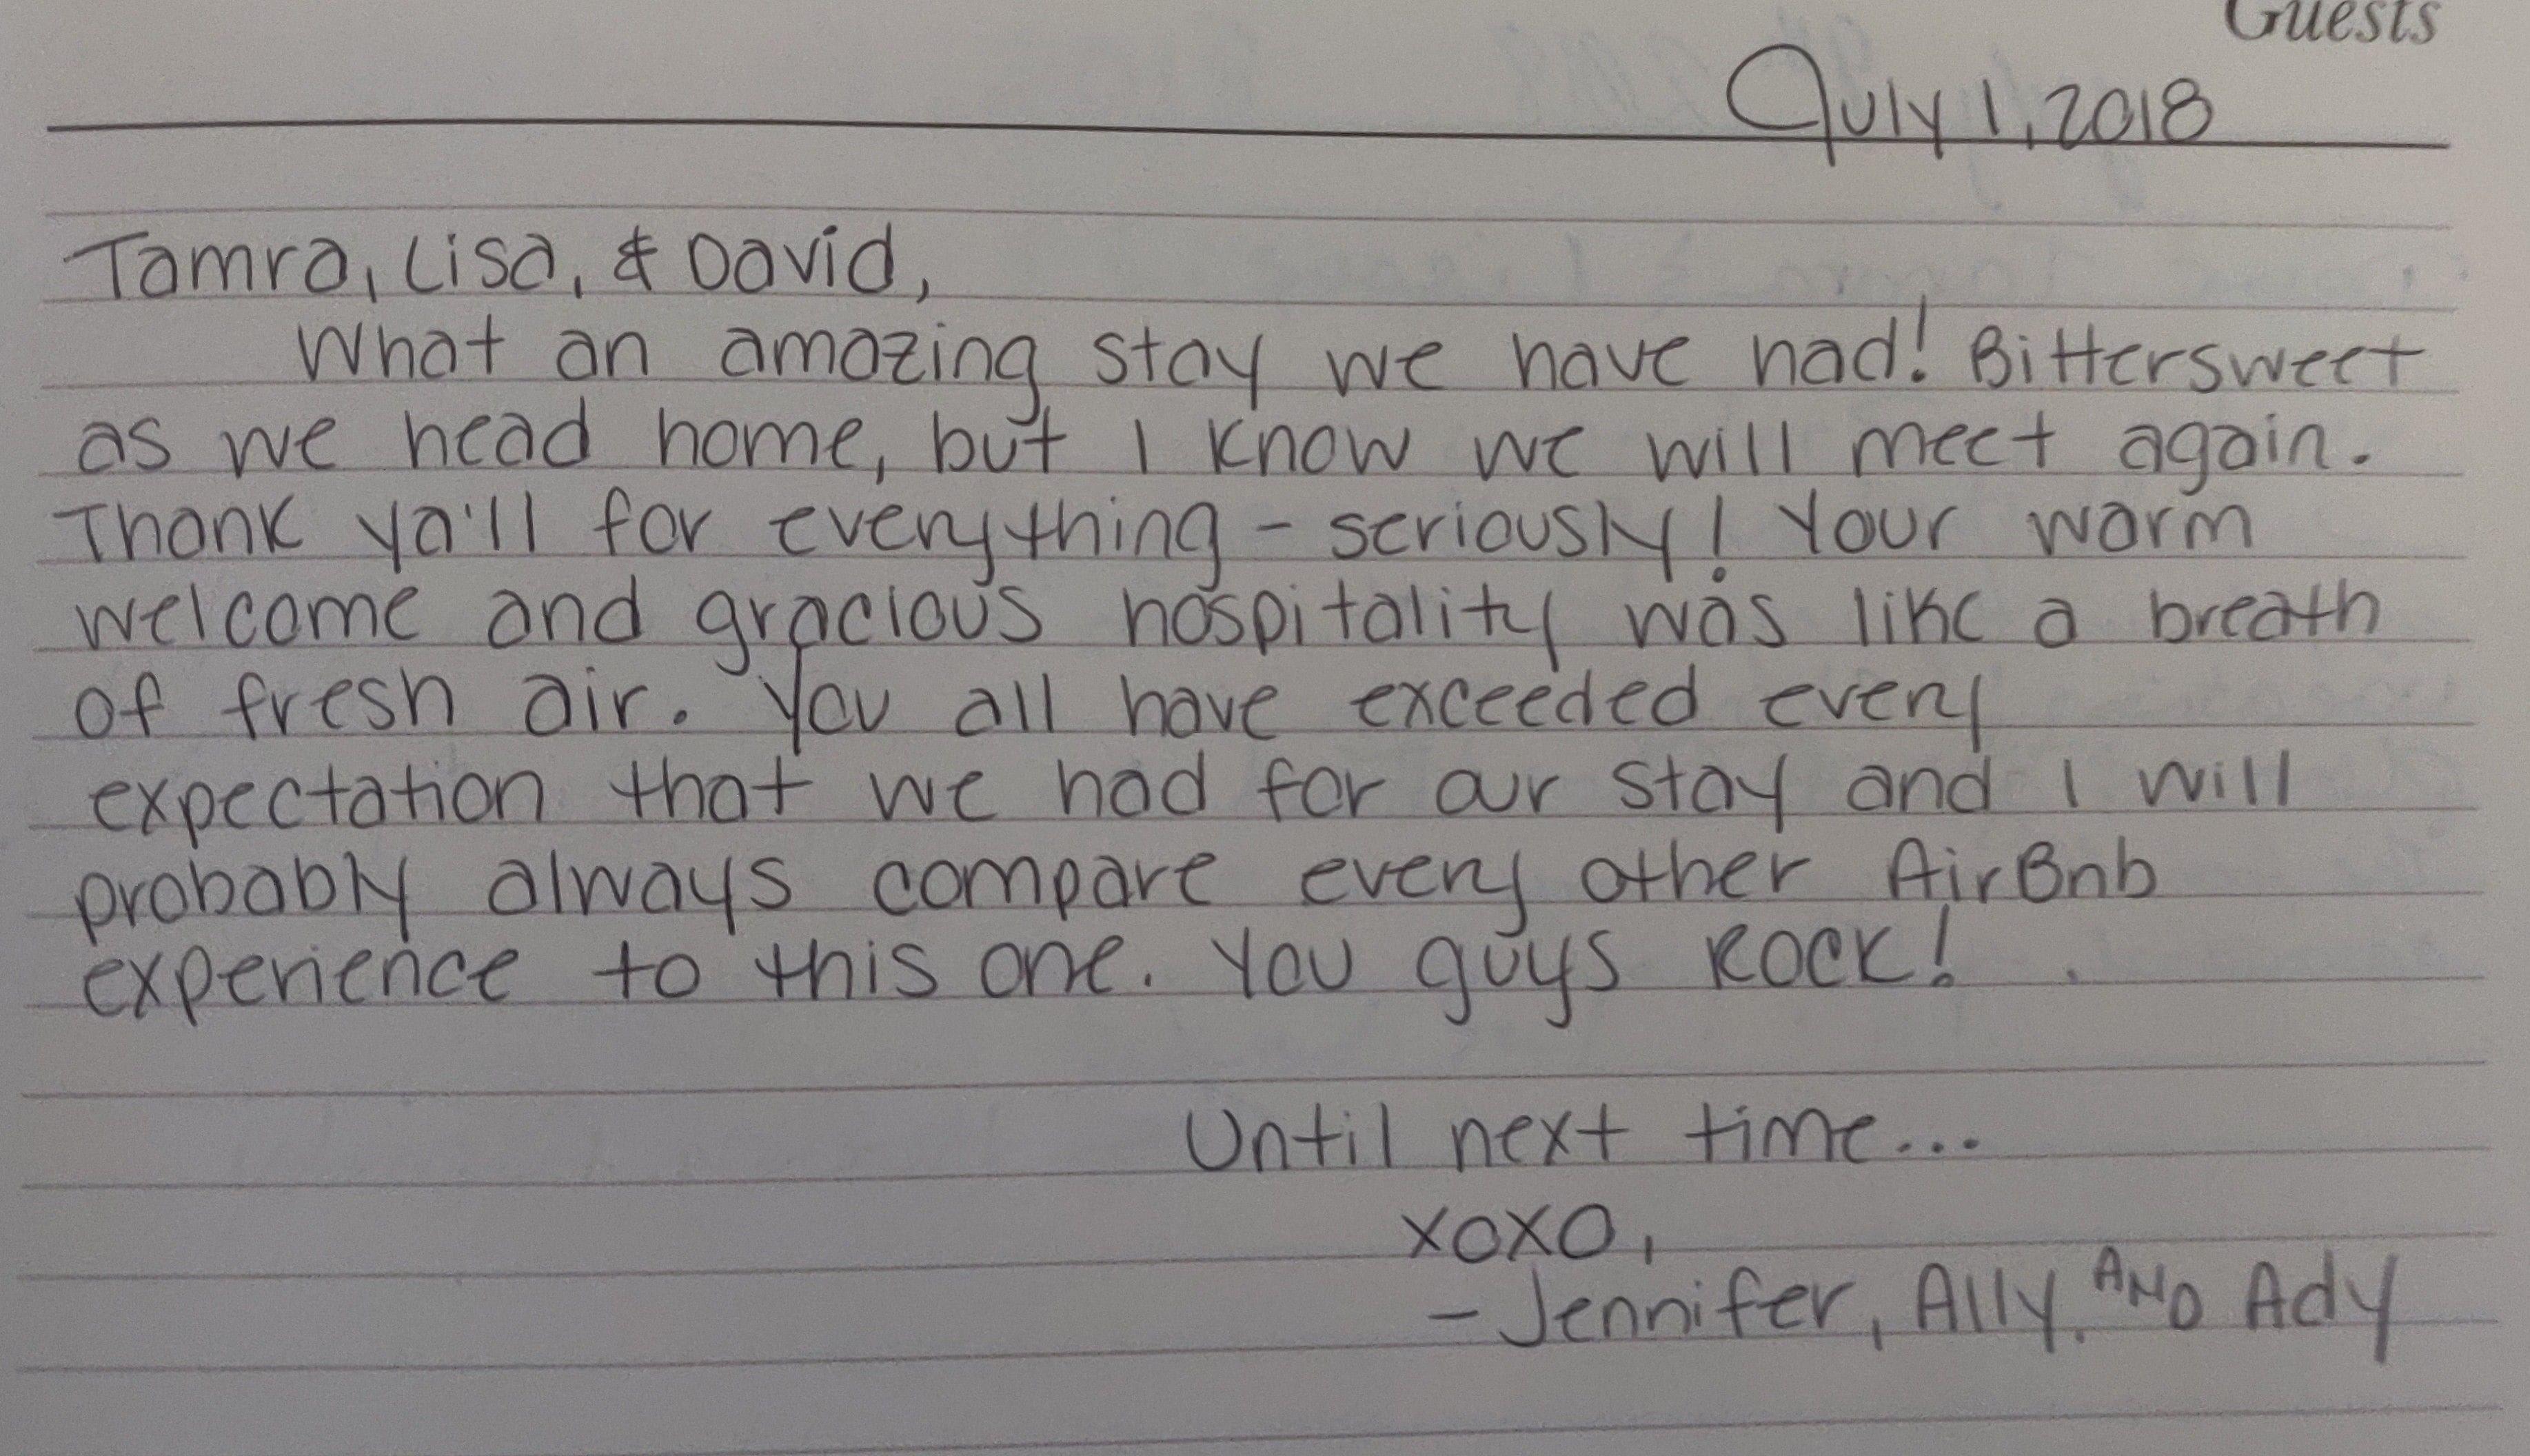 Guests
July 1, 2018
Tamra, Lisa, & David,
What an amazing stay we have had! Bittersweet
as we head home, but I know we will meet again.
Thank ya'll for everything - seriously! Your warm
welcome and gracious hospitality was like a breath
of fresh air. You all have exceeded every
expectation that we had for our stay and I will
probably always compare every other AirBnb
experience to this one. You guys ROCK!
Until next time...
XOXO,
- Jennifer, Ally, AND Ady